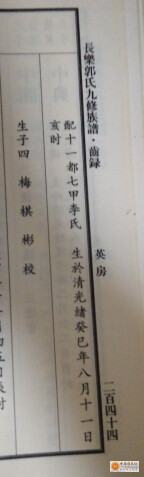 長樂郭氏九修族譜·齒録
英房
二百四十四
配十一都七甲李氏 生於清光緒癸巳年八月十一日
亥时
生子四 梅 棋 彬 校